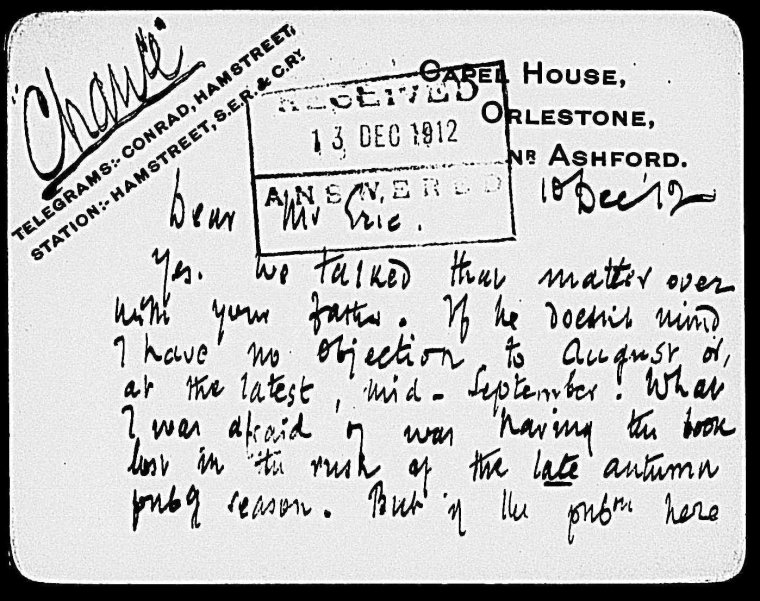 "Chance"
TELEGRAMS:- CONRAD, HAMSTREET.
STATION:- HAMSTREET, S.E.R. & C.RY.
CAPEL HOUSE,
ORLESTONE,
NR ASHFORD.
RECEIVED
13 DEC 1912
ANSWERED
Dec '12
Dear Mr Eric.
Yes. We talked that matter over
with your father. If he doesn't mind
I have no objection to August or,
at the latest, mid-September. What
I was afraid of was having the book
lost in the rush of the late autumn
pubg season. But if the pubon here